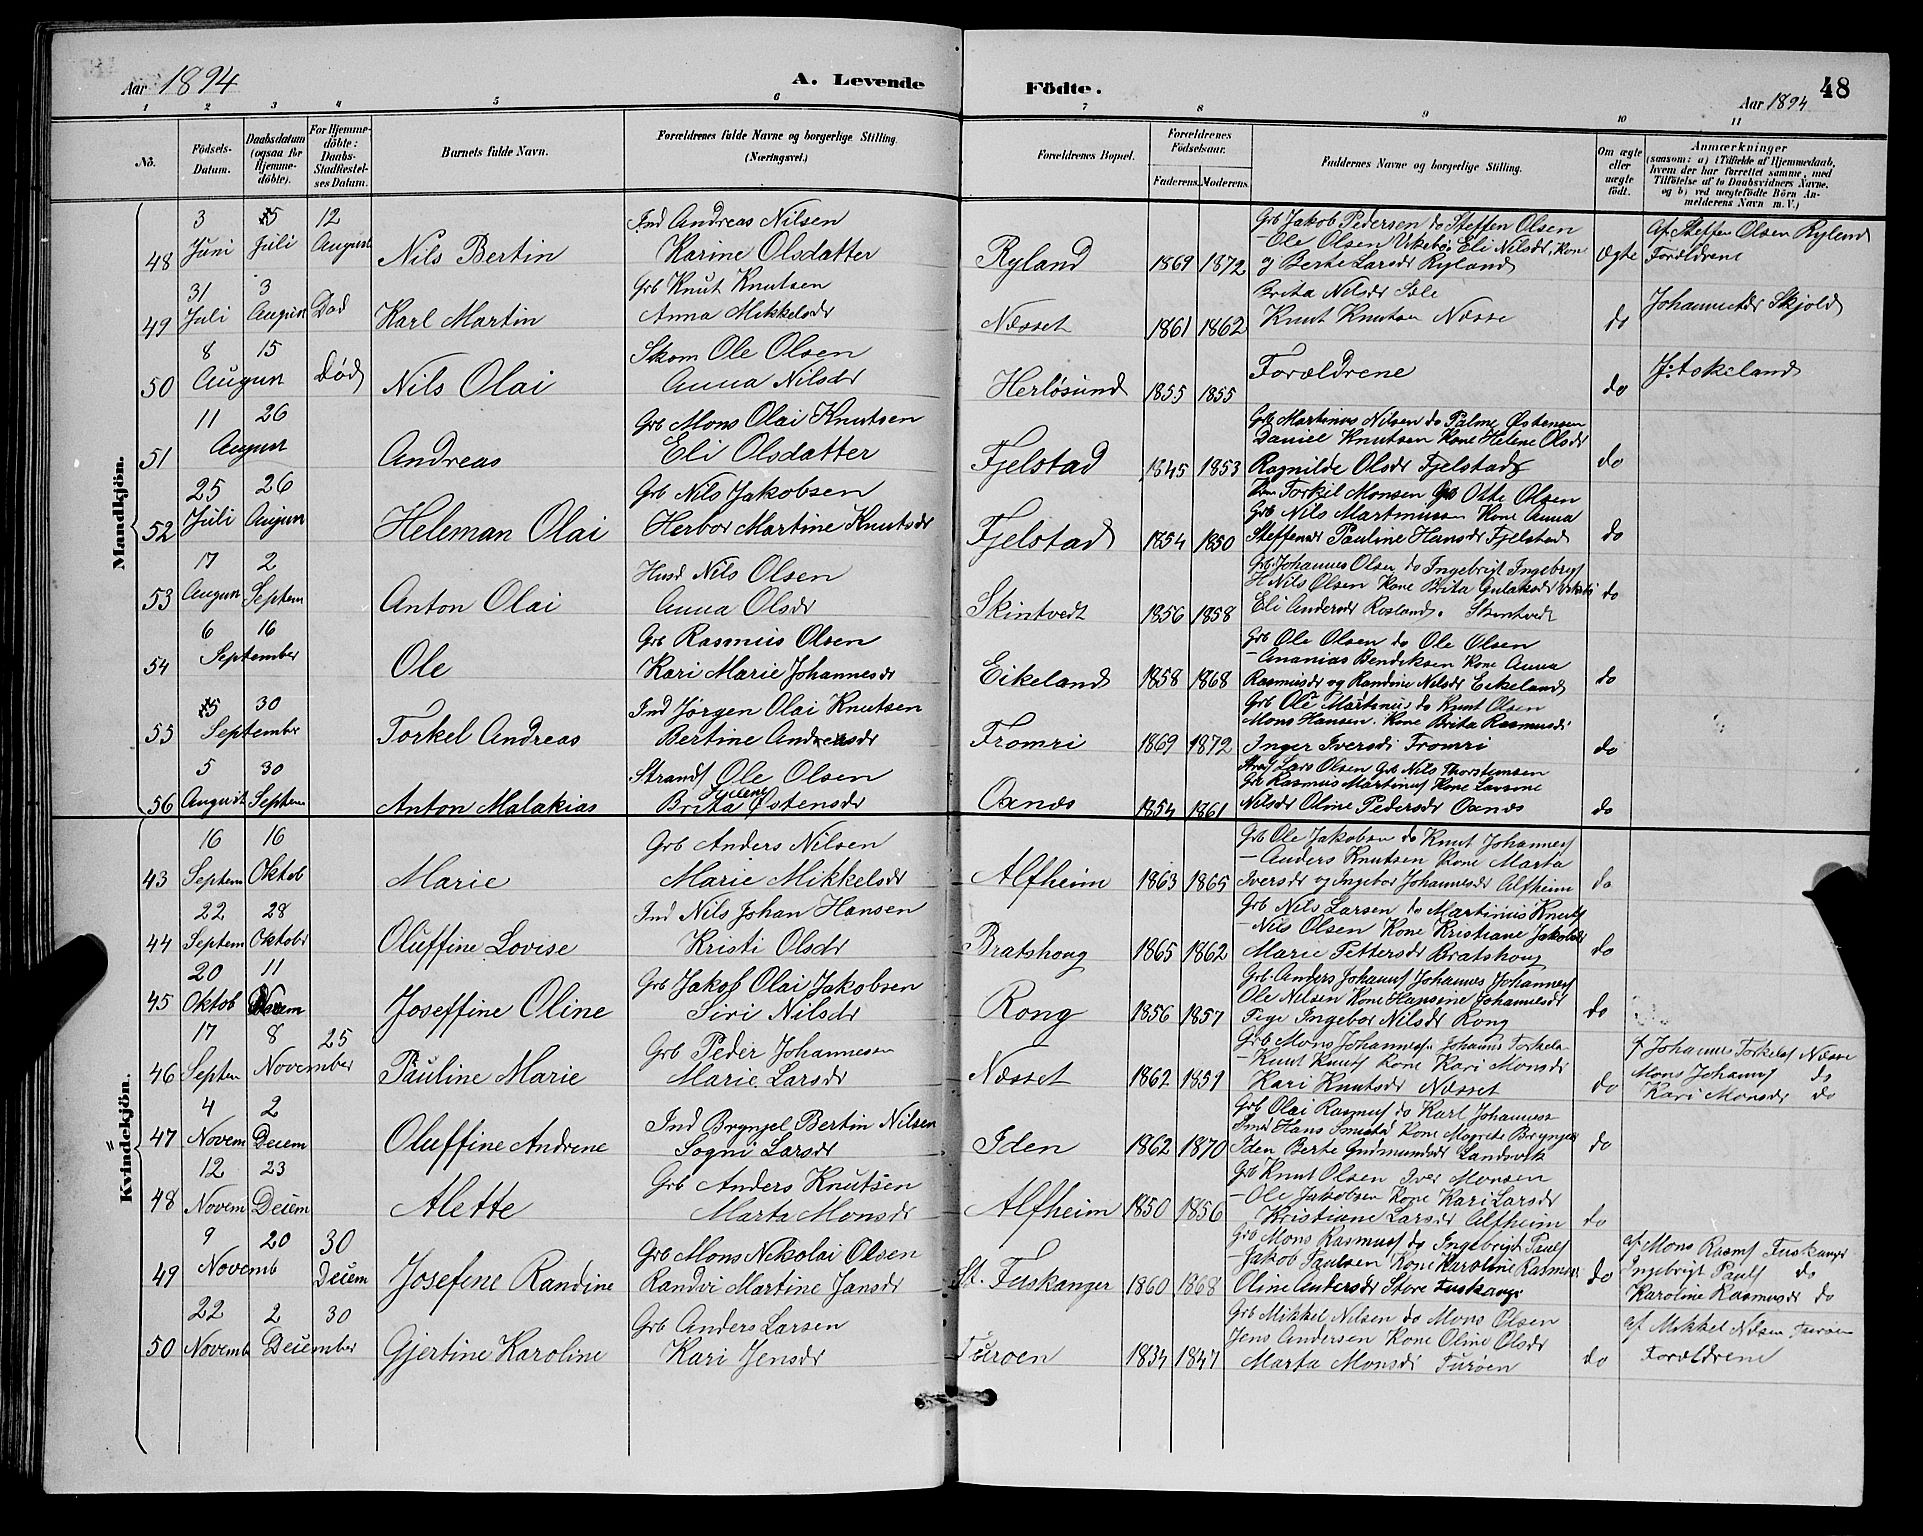 Aar 1894
A. Levende
Födte.
Aar 1894
48
1 2 3 4 5 6 7 8 9 10 11
No. Födsels-Datum. Daabsdatum (ogsaa for Hjemme-döbte). For Hjemme-döbte: Daabs-Stadfæstel-ses Datum. Barnets fulde Navn. Forældrenes fulde Navne og borgerlige Stilling. (Næringsvei.) Forældrenes Bopæl. Forældrenes Födselsaar. Faderens. Moderens. Faddernes Navne og borgerlige Stilling. Om ægte eller uægte födt. Anmærkninger (saasom: a) i Tilfælde af Hjemmedaab, hvem der har forrettet samme, med Tilföielse af to Daabsvidners Navne, og b) ved uægtefödte Börn An-melderens Navn m. V.)
Mandkjön.
48 3 Juni 15 Juli 12 August Nils Bertin Ind Andreas Nilsen Karine Olsdatter Ryland 1869 1872 Grb Jakob Pedersen do Steffen Olsen
- Ole Olsen Eli Nilsdr, Kone
og Berte Larsdr Ryland ægte af Steffen Olsen Ryland
Forældrene
49 31 Juli 3 August Død Karl Martin Grb Knut Knutsen Anna Mikkelsdr Næsset 1861 1862 Brita Nilsdr
Knut Knutsen Næsse do Skjold
50 8 15 August Død Nils Olai Skom Ole Olsen Anna Nilsdr Herløsund 1855 1855 Forældrene do J. Askeland
51 11 26 August Andreas Grb Mons Olai Knutsen Eli Olsdatter Fjelstad 1845 1853 Grb Martinus Nilsen do Palme Østensen
Daniel Knutsen Kone Helene Olsdr
Ragnilde Olsdr Fjelstad do
52 25 Juli 26 August Heleman Olai Grb Nils Jakobsen Herbor Martine Knutsdr Fjelstad 1854 1850 Torkil Monsen Grb Otte Olsen
Grb Nils Martinussen Kone Anna
Steffensdr Pauline Hansdr Fjelstad do
53 17 August 2 Septem Anton Olai Husd Nils Olsen Anna Olsdr Skintvedt 1856 1858 Grb Johannes Olsen do Ingebrigt
Nils Olsen Kone Brita
Eli Andersdr Rosland. Skintvedt do
54 6 16 September Ole Grb Rasmus Olsen Kari Marie Johannesdr Eikeland 1858 1868 Grb Ole Olsen do Ole Olsen
- Ananias Bendiksen Kone Anna
Rasmusdr og Randine Nilsdr Eikeland do
55 15 30 September Torkel Andreas Ind Jørgen Olai Knutsen Bertine Andreasdr Fromri 1869 1872 Grb Ole Martinus do Knut Olsen
Mons Hansen. Kone Brita Rasmusdr
Inger Iversdr Fromri do
56 5 August 30 Septem Anton Malakias Strands Ole Olsen Brita Østensdr Oxnes 1854 1861 Lars Olsen Grb Nils Thorstensen
Grb Rasmus Martinus Kone Lavine
Nilsdr Oline Pedersdr Oxnes do
Kvindekjön.
43 16 Septem 16 Oktob Marie Grb Anders Nilsen Marie Mikkelsdr Alfheim 1863 1865 Grb Ole Jakobsen do Knut Johannes
- Anders Knutsen Kone Marta
Iversdr og Ingebor Johannesdr Alfheim do
44 22 Septem 28 Oktobr Oluffine Lovise Ind Nils Johan Hansen Kristi Olsdr Bratshoug 1865 1862 Grb Nils Larsen do Martinius Knuts
- Nils Olsen Kone Kristiane Jakobdr
Marie Pettersdr Bratshoug do
45 20 Oktob 11 Novem Joseffine Oline Grb Jakob Olai Jakobsen Siri Nilsdr Rong 1856 1857 Grb Anders Johans Johannes Johannes
Ole Nilsen Kone Hansine Johannesdr
Pige Ingebor Nilsdr Rong do
46 17 Septem 8 25 November Pauline Marie Grb Peder Johannesen Marie Larsdr Næsset 1862 1859 Grb Mons Johannes. Johannes Torkels
- Knut Knuts Kone Kari Monsdr
Kari Knutsdr Næsset do f Johannes Torkels Næsse
Mons Johans do
Kari Monsdr do
47 4 Novem 2 Decem Oluffine Andrene Ind Brynjel Bertin Nilsen Sogni Larsdr Iden 1862 1870 Grb Olai Rasmus do Karl Johanness
Ind Hans Kone Magrete Brynjels
Iden Berte Gudmundsdr Landsvik do
48 12 Novem 23 Decem Alette Grb Anders Knutsen Marta Monsdr Alfheim 1850 1856 Grb Knut Olsen Iver Monsen
- Ole Jakobsen Kone Kari Larsdr
Kristiane Larsdr Alfheim do
49 9 Novemb 20 30 Decem Josefine Randine Grb Mons Nikolai Olsen Randvi Martine Jansdr St. Fuskanger 1860 1868 Grb Mons Rasmus do Ingebrigt Pauls
- Jakob Paulsen Kone Karoline Rasmus
Oline Andersdr Store Fuskange do af Mons Rasms Fuskanger
Ingebrigt Pauls do
Karoline Rasmusdr do
50 22 Novemb 2 30 December Gjertine Karoline Grb Anders Larsen Kari Jensdr Turoen 1834 1847 Grb Mikkel Nilsen do Mons Olsen
Jens Andersen Kone Oline Olsdr
Marta Monsdr Turøen do af Mikkel Nilsen Turøen
Forældrene